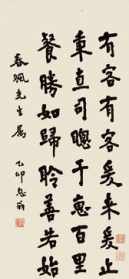 有客有客爰来爰止
秉直司聰于惠百里
餐勝如歸聆善若始
春颿先生属
乙卯